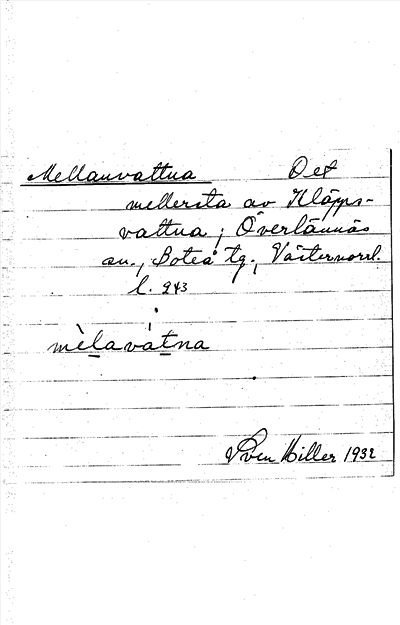 Mellanvattna Det
mellersta av Kläpps-
vattna; Överlännäs
sn., Boteå tg., Västernorrl.
l. 243
mèlavátna
Sven Hiller 1932